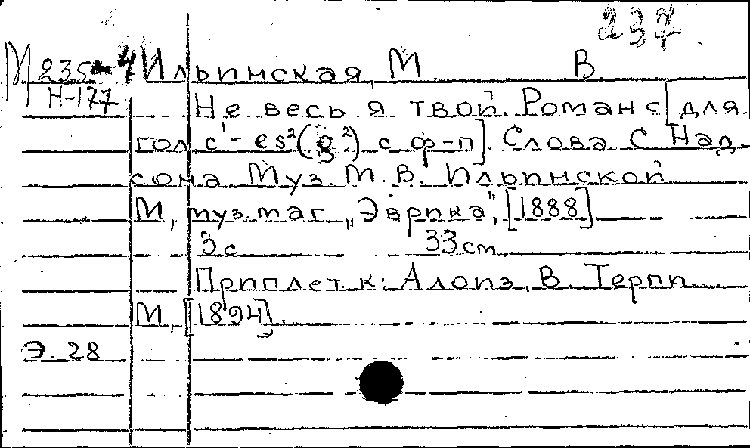 237
М 235-4 Ильинская, М В
Н-177 Не весь я твой. Романс [для
гол c¹-es²(g²) с ф-п]. Слова С. Над
сона Муз. М. В. Ильинской
М, муз. маг. „Эврика", [1888]
3 с 33 cm
Приплет к: Алоиз, В. Терпи.
М, [1894].
Э. 28